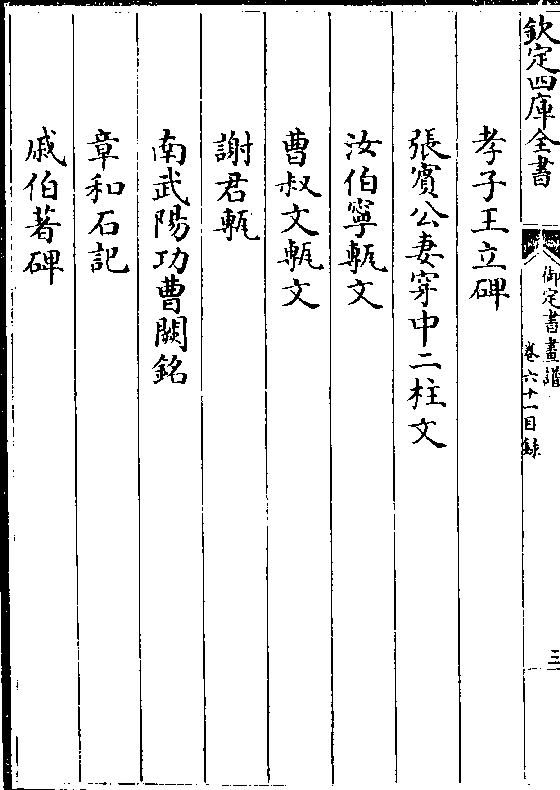 欽定四庫全書
御定書畫譜
卷六十一目錄
三
孝子王立碑
張賓公妻穿中二柱文
汝伯寧甎文
曹叔文甎文
謝君甎
南武陽功曹闕銘
章和石記
戚伯著碑